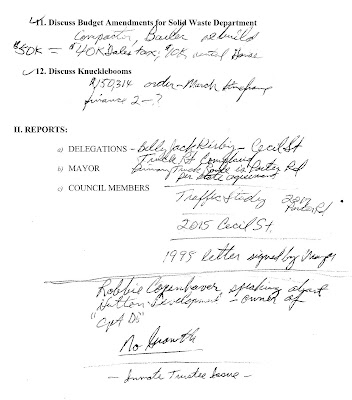 11. Discuss Budget Amendments for Solid Waste Department
Compactor, Bailer rebuild
$50K = $40K Sales tax, $10K
12. Discuss Knucklebooms
$150,314 order - March timeframe
finance 2 - ?
II. REPORTS:
a) DELEGATIONS - Billy Jack Kirby - Cecil St
Truck Rt Complaint
b) MAYOR Primary Truck Route is Porter Rd
per State agreement
c) COUNCIL MEMBERS
Traffic Study 2017
Porter Rd
2015 Cecil St.
1998 letter signed by Mayor
Robbie Copenhaver speaking about
"Hutton Development" - owner of
"Opt D's"
No Growth
- Inmate Trustee Issue -